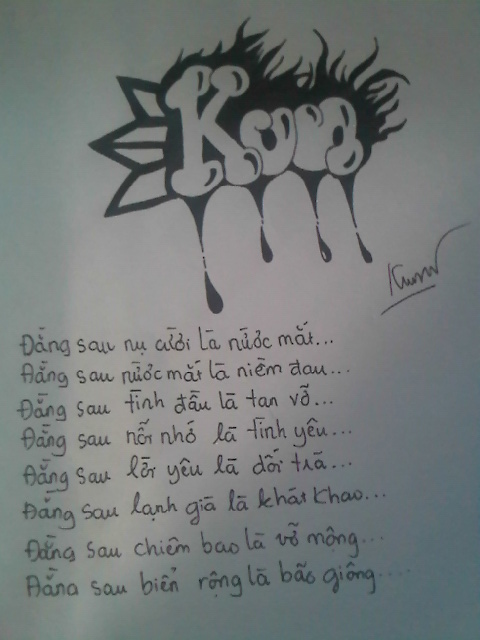 Kun
Kun
Đằng sau nụ cười là nước mắt...
Đằng sau nước mắt là niềm đau...
Đằng sau tình đầu là tan vỡ...
Đằng sau nỗi nhớ là tình yêu...
Đằng sau lời yêu là dối trá...
Đằng sau lạnh giá là khát khao...
Đằng sau chiêm bao là vỡ mộng...
Đằng sau biển rộng là bão giông....